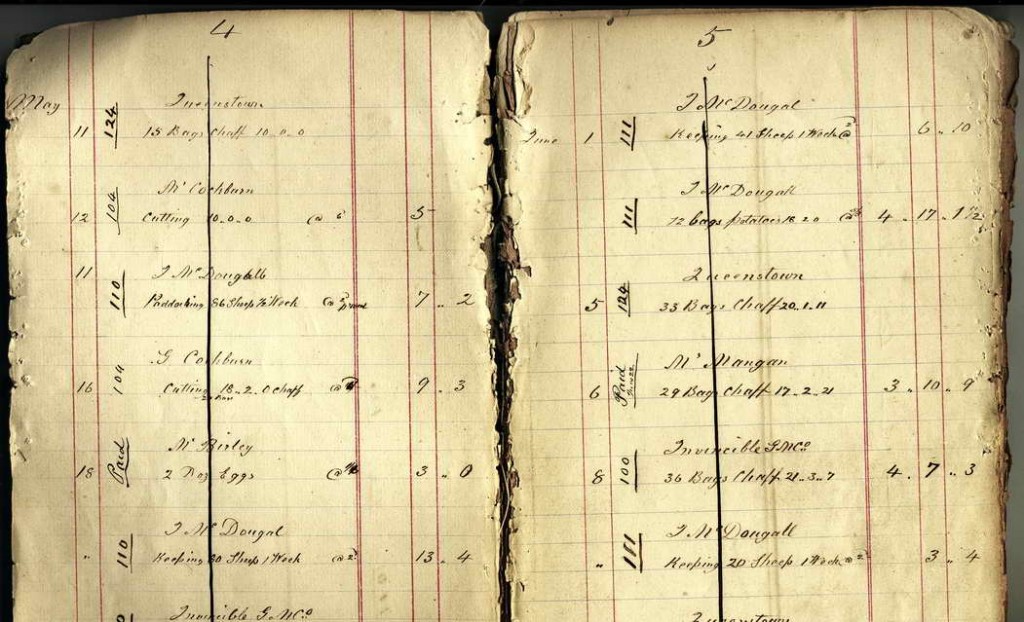 4
May
Queenstown
11 124 15 Bags Chaff 10.0.0
Mr Cockburn
12 104 Cutting 10.0.0 @ 6 5
11 J McDougall
110 Paddocking 86 Sheep Week @ 7 .. 2
G Cockburn
16 104 Cutting 18..2.0 Chaff @ 9 . 3
Mr Birley
18 Paid 2 Doz Eggs @ 3 .. 0
J McDougal
" 110 Keeping 80 Sheep 1 Week @ 2 13 .. 4
Invincible G.M.Co
5
J McDougal
June 1 111 Keeping 41 Sheep 1 Week @ 2 6 .. 10
J McDougall
111 72 bags potatoes 18.2.0 @ 4 . 17 . 1 1/2
Queenstown
5 124 33 Bags Chaff 20.1.11
Mr Mangan
6 Paid 29 Bags Chaff 17..2..21 3 .. 10 .. 9
Invincible G.M.Co
8 100 36 Bags Chaff 21..3..7 4 . 7 .. 3
J McDougall
" 111 Keeping 20 Sheep 1 Week @ 2 3 .. 4
Queenstown